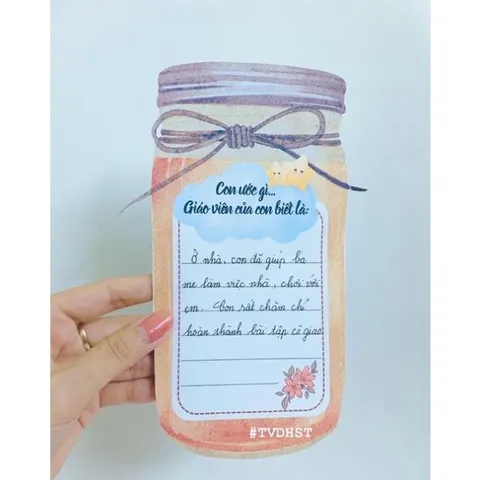 Con ước gì...
Giáo viên của con biết là:
Ở nhà, con đã giúp ba
mẹ làm việc nhà, chơi với
em. Con rất chăm chỉ
hoàn thành bài tập cô giao
#TVDHST